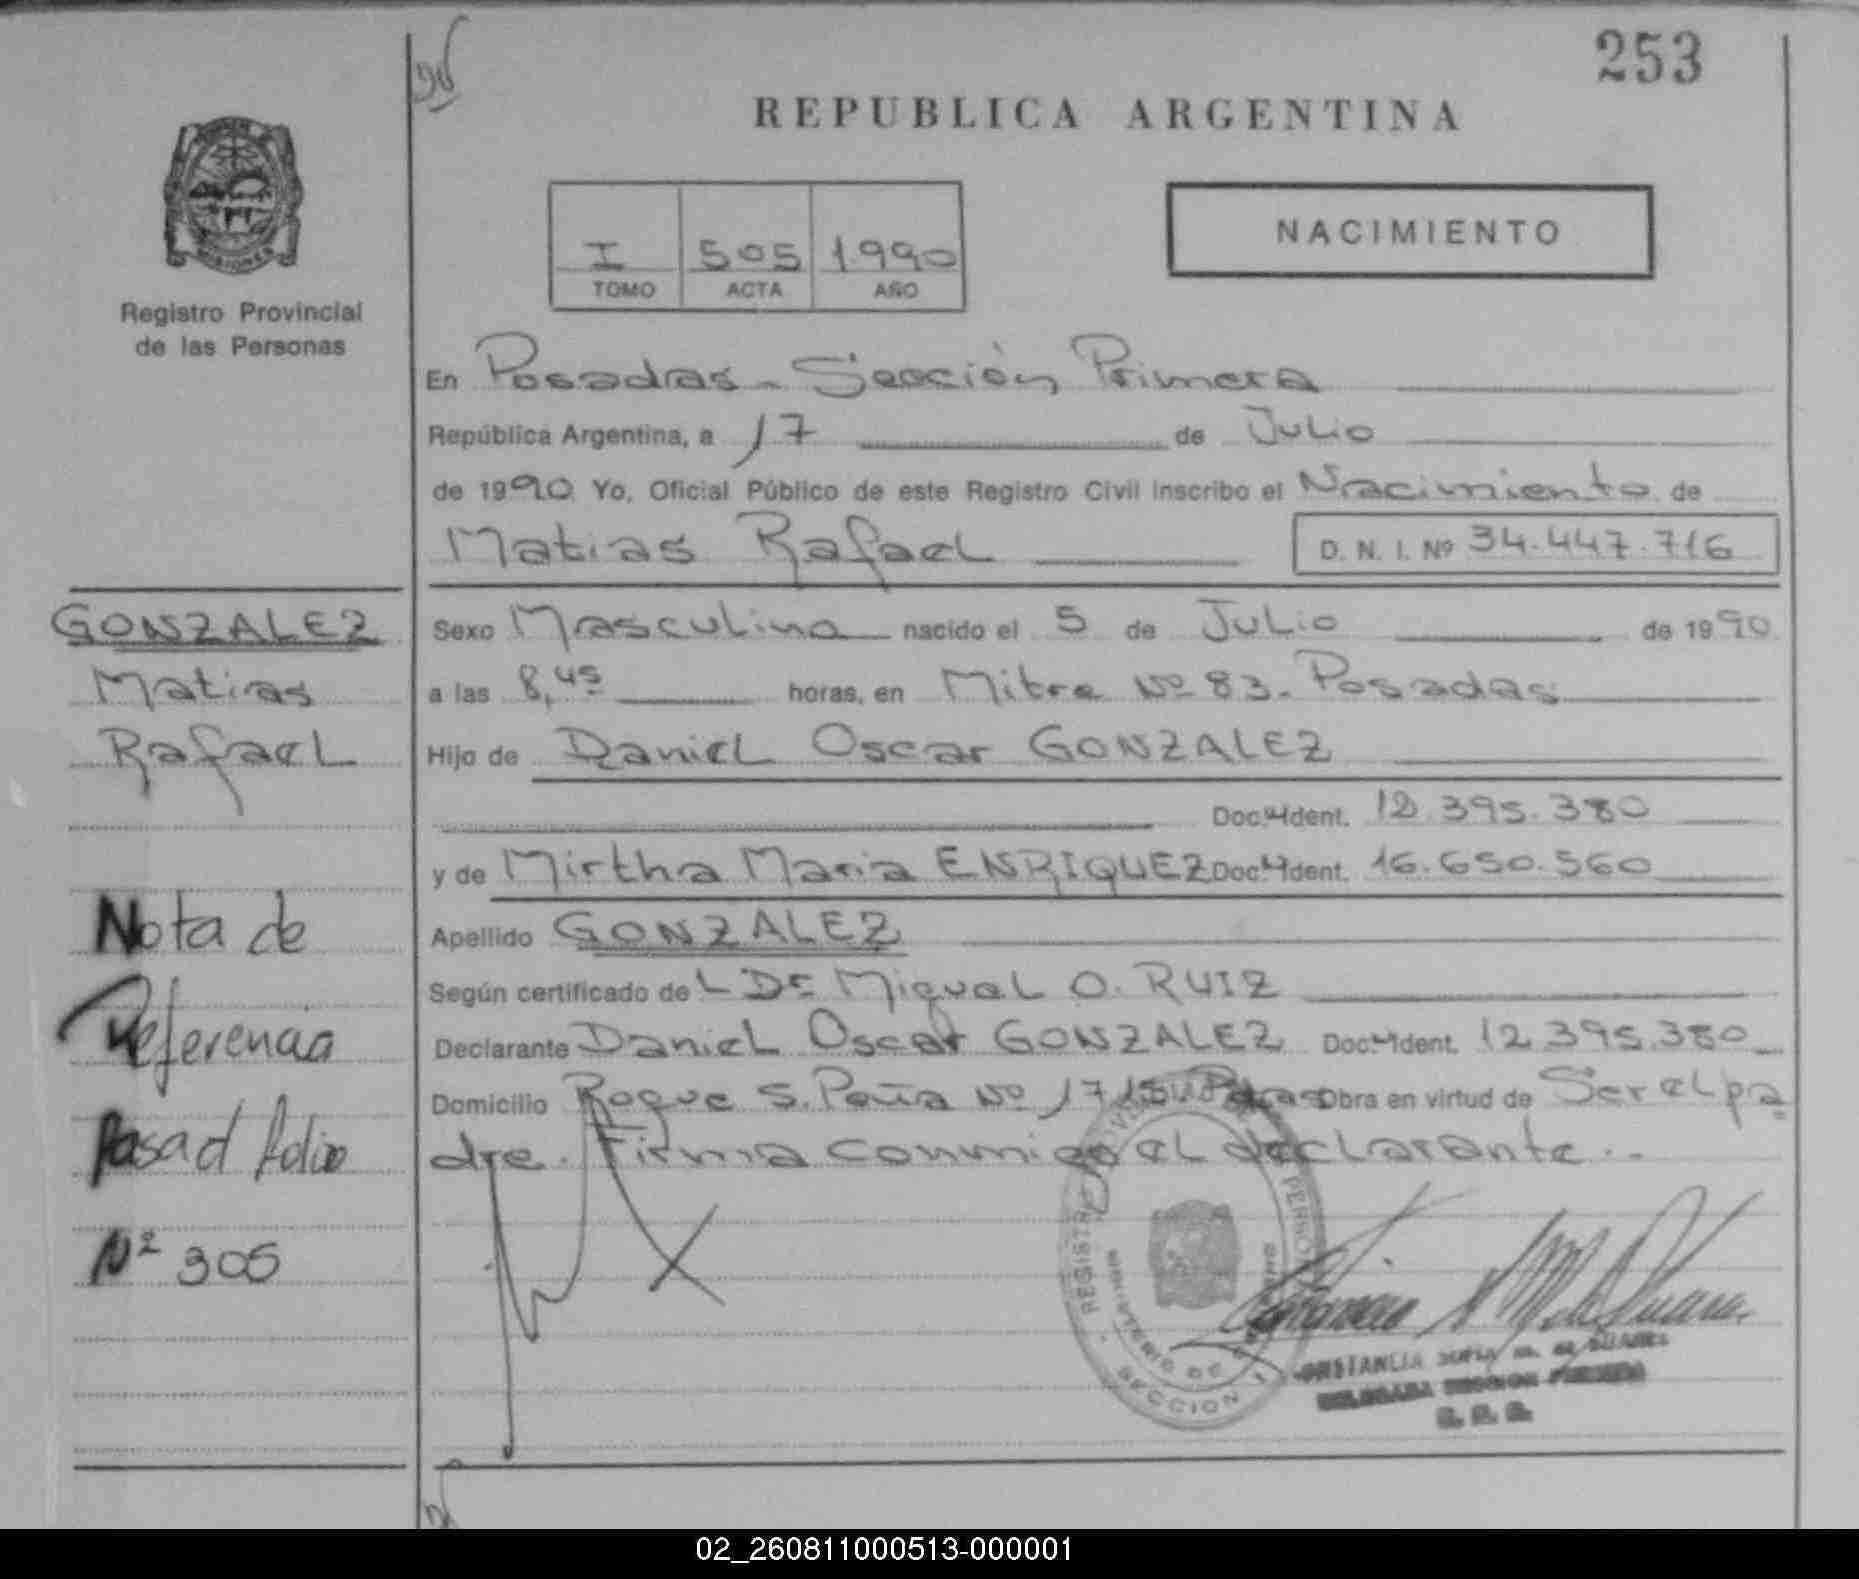 253
REPUBLICA ARGENTINA
MISIONES
Registro Provincial
de las Personas
I 505 1990
TOMO ACTA AÑO
NACIMIENTO
En Posadas - Sección Primera
República Argentina, a 17 de Julio
de 1990 Yo, Oficial Público de este Registro Civil inscribo el Nacimiento de
Matias Rafael D. N. I. Nº 34.447.716
GONZALEZ
Matias
Rafael
Sexo Masculino nacido el 5 de Julio de 1990
a las 8,45 horas, en Mitre Nº 83. Posadas
Hijo de Daniel Oscar GONZALEZ
Doc. Ident. 12.395.380
y de Mirtha Maria ENRIQUEZ Doc. Ident. 16.650.560
Apellido GONZALEZ
Según certificado del Dr Miguel O. RUIZ
Declarante Daniel Oscar GONZALEZ Doc. Ident. 12.395.380
Domicilio Roque S. Peña Nº Obra en virtud de Ser el pa
dre. Firma conmigo el declarante..
Nota de
Referencia
Pasad folio
Nº 305
SECCION 1
02_260811000513-000001